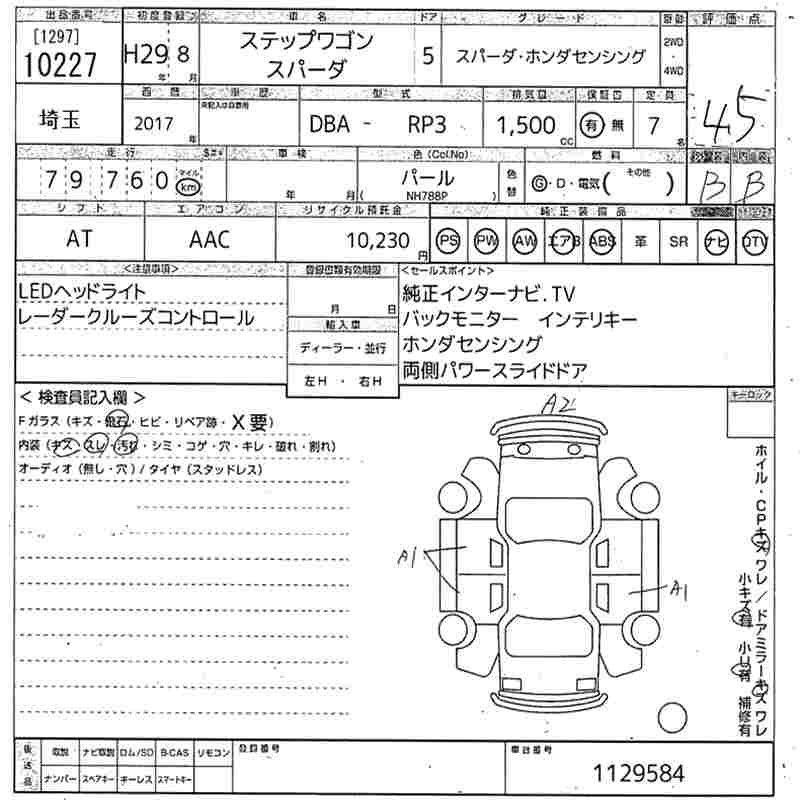 出品番号 初度登録年 車名 ドア グレード 駆動 評価点
[1297]
10227
H29 8
年 月
ステップワゴン
スパーダ
5
スパーダ・ホンダセンシング
2WD
・
4WD
4.5
埼玉
西暦 車歴 型式 排気量 保証書 定員
未記入は自家用
2017 年
DBA - RP3
1,500 cc
有 無
7 名
走行 車検 色(Col,No) 燃料
79760 マイル km
年 月
パール
( NH788P )
色替
G・D・電気( その他 )
B B
シフト エアコン リサイクル預託金 純正装備品
AT AAC 10,230 円
PS PW AW エアB ABS 革 SR ナビ DTV
<注意事項> 登録書類有効期限 <セールスポイント>
LEDヘッドライト
レーダークルーズコントロール
月 日
輸入車
ディーラー・並行
左H ・ 右H
純正インターナビ.TV
バックモニター インテリキー
ホンダセンシング
両側パワースライドドア
キーロック
< 検査員記入欄 >
Fガラス(キズ・飛石・ヒビ・リペア跡・X要)
内装(キズ・スレ・汚れ・シミ・コゲ・穴・キレ・破れ・割れ)
オーディオ(無し・穴)/タイヤ(スタッドレス)
A2
A1
A1
ホイル・CPキズワレ/ドアミラーキズワレ
小キズ有 小U有 補修有
後送品
取説 ナビ取説 ロム/SD B-CAS リモコン
ナンバー スペアキー キーレス スマートキー
登録番号
車台番号
1129584